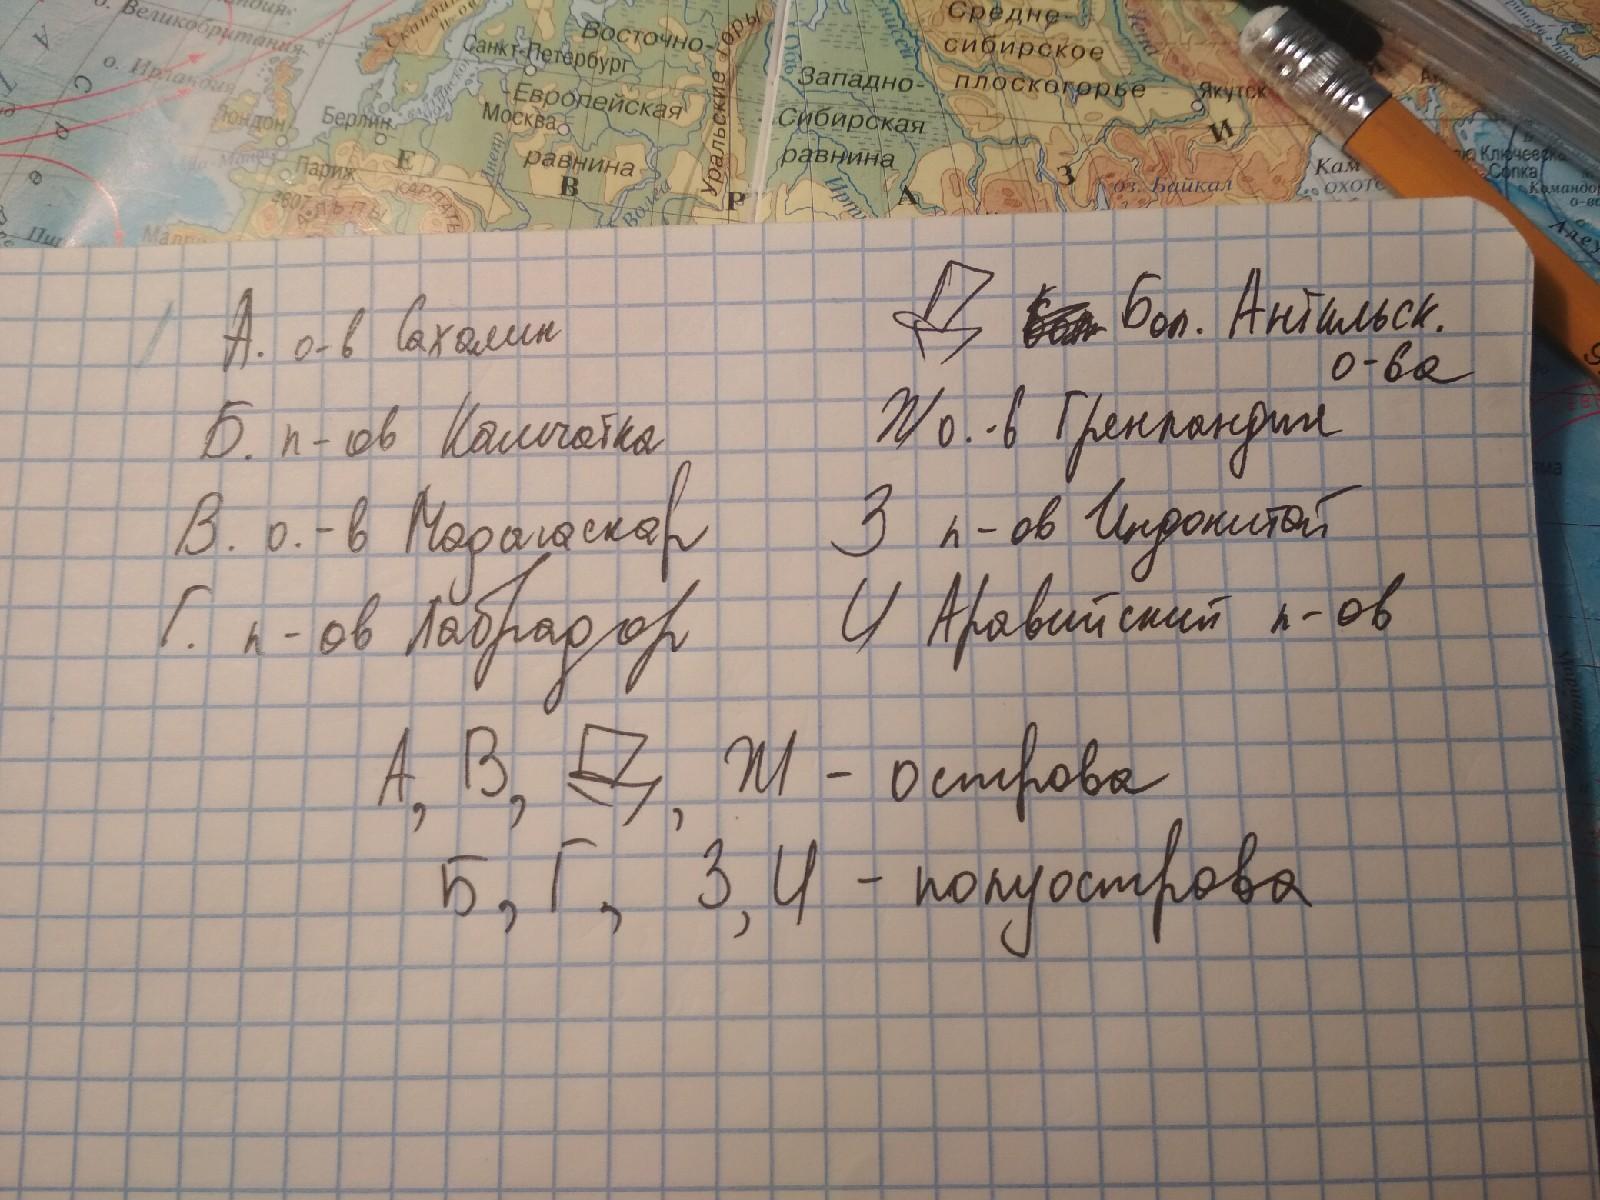 о. Великобритания
о. Ирландия
Санкт-Петербург
Восточно-
Европейская
равнина
Лондон
Берлин
Москва
Париж
Днепр
Волга
АЛЬПЫ
КАРПАТЫ
4807
Уральские горы
Обь
Енисей
Западно-
Сибирская
равнина
Средне-
сибирское
плоскогорье
Лена
Якутск
оз. Байкал
Е В Р А З И
А. о-в Сахалин
Б. п-ов Камчатка
В. о.-в Мадагаскар
Г. п-ов Лабрадор
Д Бол. Антильск.
о-ва
Ж о.-в Гренландия
З п-ов Индокитай
И Аравийский п-ов
А, В, Д, Ж - острова
Б, Г, З, И - полуострова